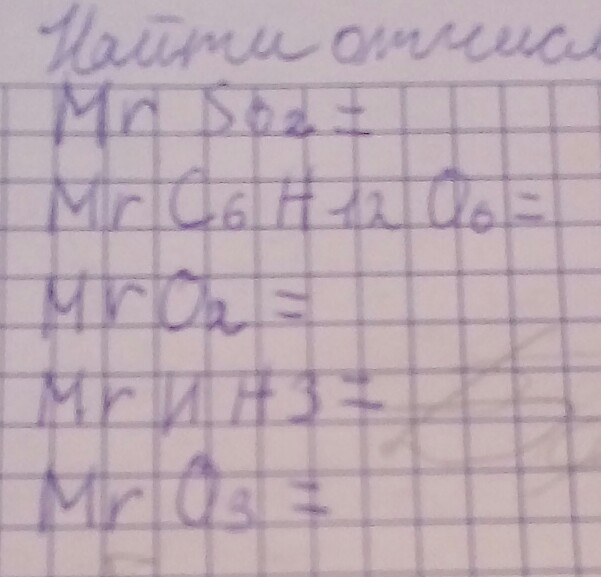 Найти
Mr SO2 =
Mr C6 H12 O6 =
Mr O2 =
Mr NH3 =
Mr O3 =